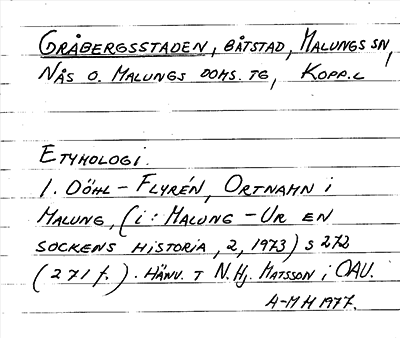 GRÅBERGSSTADEN, BÅTSTAD, MALUNGS SN,
NÅS O. MALUNGS DOMS. TG, KOPP. L
ETYMOLOGI.
1. DÖHL - FLYRÉN, ORTNAMN i
MALUNG, (i: MALUNG - UR EN
SOCKENS HISTORIA, 2, 1973) S 272
(271 f.). HÄNV. T N. Hj. MATSSON i OAU.
A-M H 1977.